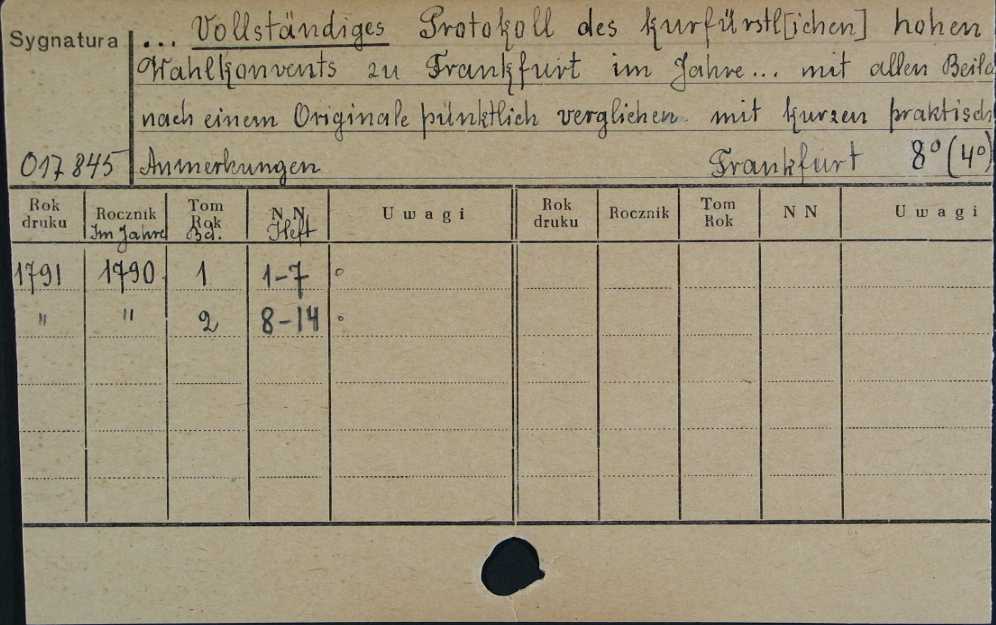 Sygnatura
... Vollständiges Protokoll des kurfürstl[ichen] hohen
Wahlkonvents zu Frankfurt im Jahre... mit allen Beila
nach einem Originale pünktlich verglichen mit kurzen praktisch
017845 Anmerkungen Frankfurt 8° (4°)
Rok druku Rocznik Im Jahre Tom Rok Bd. N N Heft Uwagi Rok druku Rocznik Tom Rok N N Uwagi
1791 1790 1 1-7 °
" " 2 8-14 °